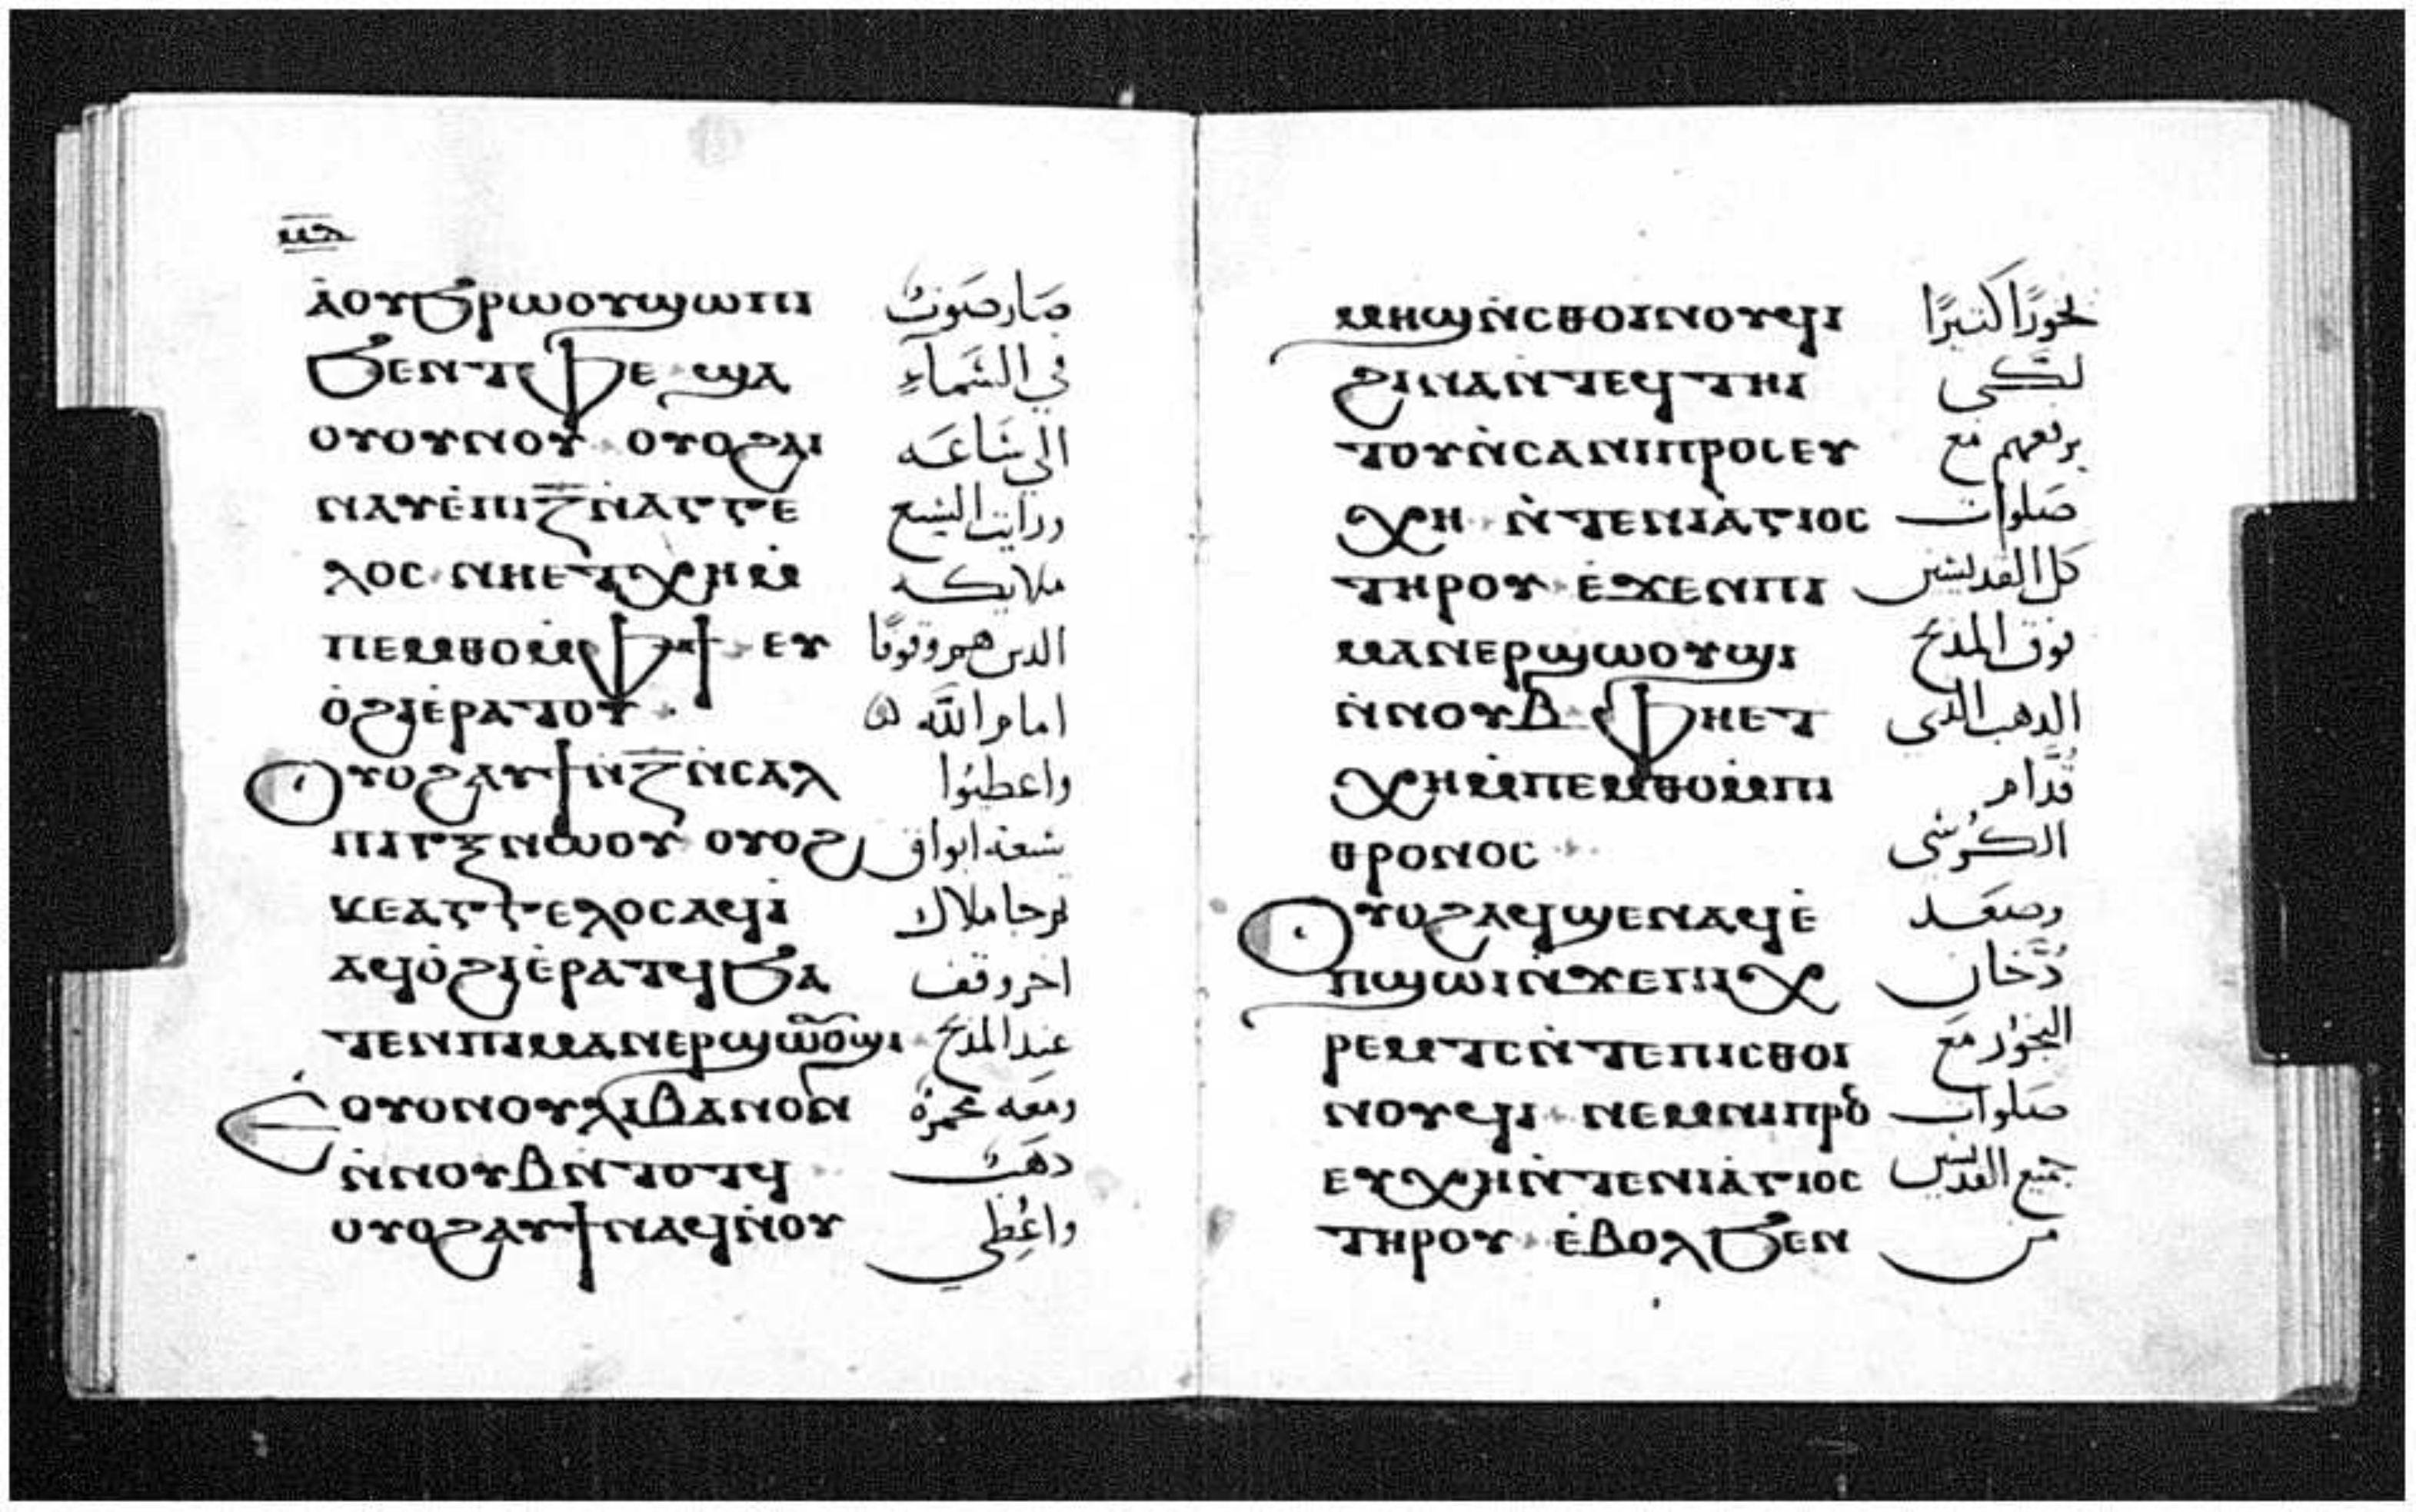 ⲁ̀ⲟⲩϧⲣⲱⲟⲩϣⲱⲡⲓ صَار صَوت
ϧⲉⲛⲧⲫⲉ ϣⲁ في السَّماءِ
ⲟⲩⲟⲩⲛⲟⲩ ⲟⲩⲟϩⲁⲓ الى سَاعَه
ⲛⲁⲩⲉ̀ⲡⲓⲍ̅ⲛ̀ⲁⲅⲅⲉ ورايت السبع
ⲗⲟⲥ ⲛⲏⲉⲧⲭⲏⲙ̀ ملايكه
ⲡⲉⲙⲑⲟⲙ̀ⲫϯ ⲉⲩ الدين هم وقوفًا
ⲟ̀ϩⲓⲉ̀ⲣⲁⲧⲟⲩ امام اللَّه
ⲟⲩⲟϩⲁⲩϯⲛ̀ⲍ̅ⲛ̀ⲥⲁⲗ واعطيوا
ⲡⲓⲅⲝⲛⲱⲟⲩ ⲟⲩⲟϩ سبعة ابواق
ⲕⲉⲁⲅⲅⲉⲗⲟⲥⲁϥⲓ̀ ثم جا ملاك
ⲁϥⲟ̀ϩⲓⲉ̀ⲣⲁⲧϥϧⲁ اخر وقف
ⲧⲉⲛⲡⲓⲙⲁⲛⲉⲣϣⲱⲟⲩϣⲓ عند المذبح
ⲉ̀ⲟⲩⲟⲛⲟⲩⲗⲓⲃⲁⲛⲟⲛ ومعه مجمرة
ⲛ̀ⲛⲟⲩⲃⲛ̀ⲧⲟⲧϥ دهَب
ⲟⲩⲟϩⲁⲩϯⲛⲁϥⲛ̀ⲟⲩ واعُطِي
ⲙⲏϣⲛ̀ⲥⲑⲟⲓⲛⲟⲩϥⲓ بخورًا كثيرًا
ϩⲓⲛⲁⲛ̀ⲧⲉϥⲧⲏⲓ لكي
ⲧⲟⲩⲛ̀ⲥⲁⲛⲓⲡⲣⲟⲥⲉⲩ يرفعهم مع
ⲭⲏ ⲛ̀ⲧⲉⲛⲓⲁ̀ⲅⲓⲟⲥ صَلوات
ⲧⲏⲣⲟⲩ ⲉ̀ϫⲉⲛⲡⲓ كل القديسين
ⲙⲁⲛⲉⲣϣⲱⲟⲩϣⲓ فوق المذبح
ⲛ̀ⲛⲟⲩⲃ ⲫⲏⲉⲧ الدهب الدي
ⲭⲏⲙ̀ⲡⲉⲙⲑⲟⲙ̀ⲡⲓ قُدَّام
ⲑⲣⲟⲛⲟⲥ الكُرسي
ⲟⲩⲟϩⲁϥϣⲉⲛⲁϥⲉ̀ وصَعَد
ⲡϣⲱⲓⲛ̀ϫⲉⲡⲓⲭ دُخَّان
ⲣⲉⲙⲧⲥⲛ̀ⲧⲉⲡⲓⲥⲑⲟⲓ البخور مَع
ⲛⲟⲩϥⲓ ⲛⲉⲙⲛⲓⲡⲣⲟ صَلوات
ⲉⲩⲭⲏⲛ̀ⲧⲉⲛⲓⲁ̀ⲅⲓⲟⲥ جميع القديسين
ⲧⲏⲣⲟⲩ ⲉ̀ⲃⲟⲗϧⲉⲛ من